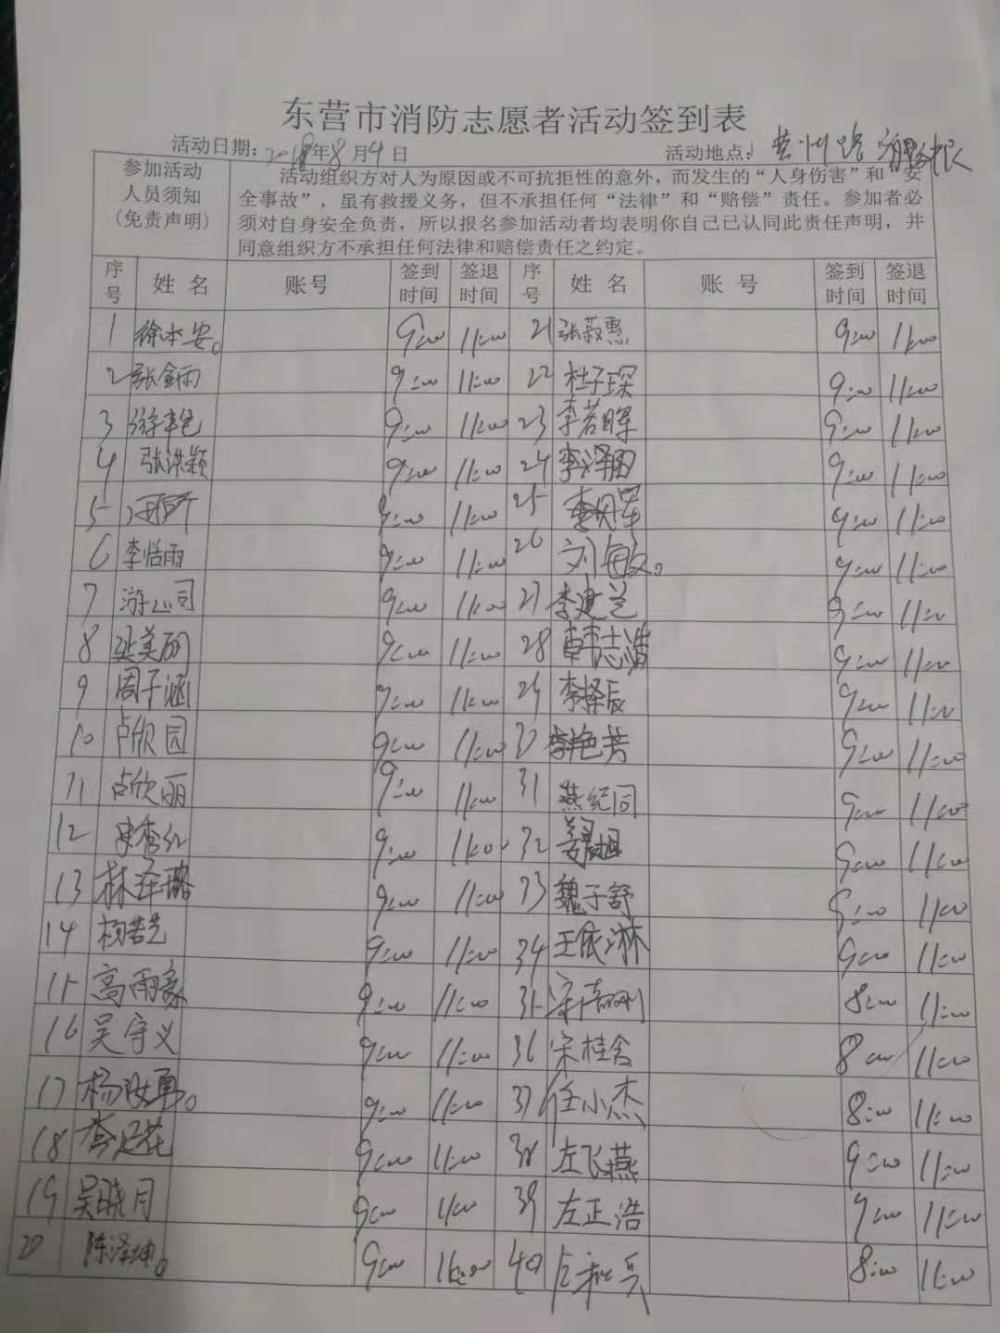 东营市消防志愿者活动签到表
活动日期：2018年8月4日 活动地点：
参加活动
人员须知
(免责声明)
活动组织方对人为原因或不可抗拒性的意外，而发生的“人身伤害”和“安
全事故”，虽有救援义务，但不承担任何“法律”和“赔偿”责任。参加者必
须对自身安全负责，所以报名参加活动者均表明你自己已认同此责任声明，并
同意组织方不承担任何法律和赔偿责任之约定。
序号 姓名 账号 签到时间 签退时间 序号 姓名 账号 签到时间 签退时间
1 徐本安。 9:00 11:00 21 张淑惠 9:00 11:00
2 张金雨 9:00 11:00 22 杜子琛 9:00 11:00
3 9:00 11:00 23 李若晖 9:00 11:00
4 张洪颖 9:00 11:00 24 9:00 11:00
5 9:00 11:00 25 9:00 11:00
6 李恬雨 9:00 11:00 26 刘敏。 9:00 11:00
7 9:00 11:00 27 李建兰 9:00 11:00
8 梁美丽 9:00 11:00 28 韩志浩 9:00 11:00
9 周子涵 9:00 11:00 29 李择辰 9:00 11:00
10 卢欣园 9:00 11:00 30 李艳芳 9:00 11:00
11 卢欣丽 9:00 11:00 31 燕纪同 9:00 11:00
12 9:00 11:00 32 9:00 11:00
13 林泽璐 9:00 11:00 33 魏子舒 9:00 11:00
14 杨若芝 9:00 11:00 34 王依琳 9:00 11:00
15 高雨豪 9:00 11:00 35 8:00 11:00
16 吴守义 9:00 11:00 36 宋桂舍 8:00 11:00
17 9:00 11:00 37 任小杰 8:00 11:00
18 9:00 11:00 38 左飞燕 9:00 11:00
19 吴晓月 9:00 11:00 39 左正浩 9:00 11:00
20 陈泽坤。 9:00 11:00 40 8:00 11:00